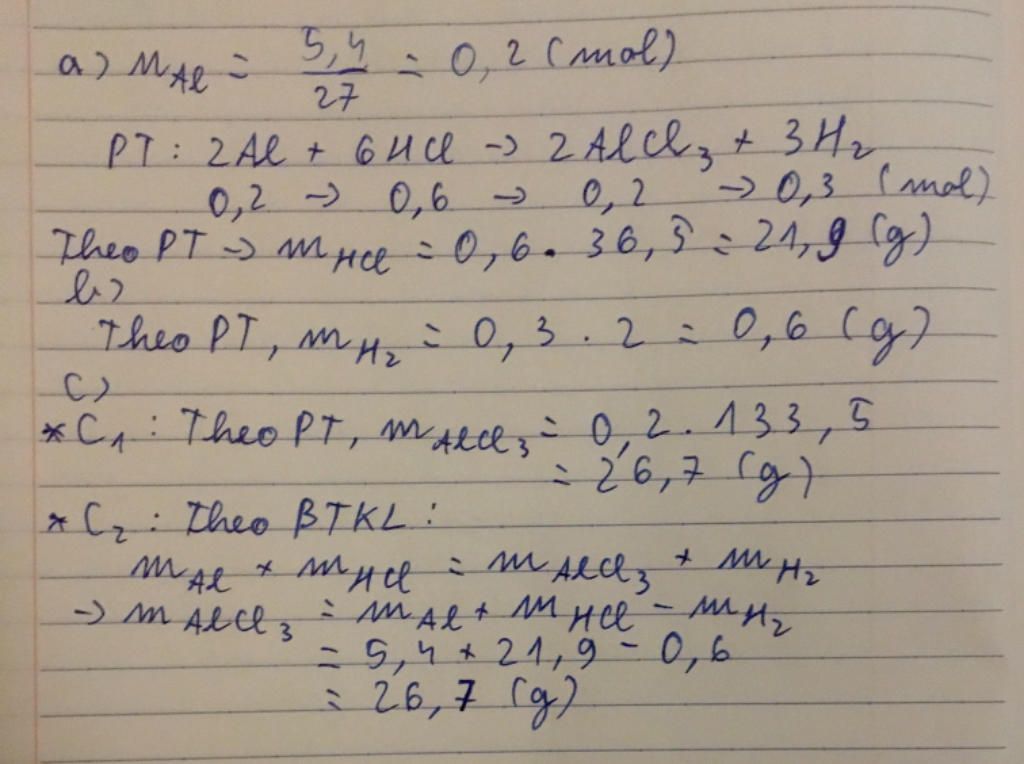 a) nAl = 5,4/27 = 0,2 (mol)
PT: 2Al + 6HCl → 2AlCl₃ + 3H₂
0,2 → 0,6 → 0,2 → 0,3 (mol)
Theo PT → mHCl = 0,6 . 36,5 = 21,9 (g)
b)
Theo PT, mH₂ = 0,3 . 2 = 0,6 (g)
c)
*C₁ : Theo PT, mAlCl₃ = 0,2 . 133,5
= 26,7 (g)
*C₂ : Theo BTKL :
mAl + mHCl = mAlCl₃ + mH₂
→ mAlCl₃ = mAl + mHCl - mH₂
= 5,4 + 21,9 - 0,6
= 26,7 (g)